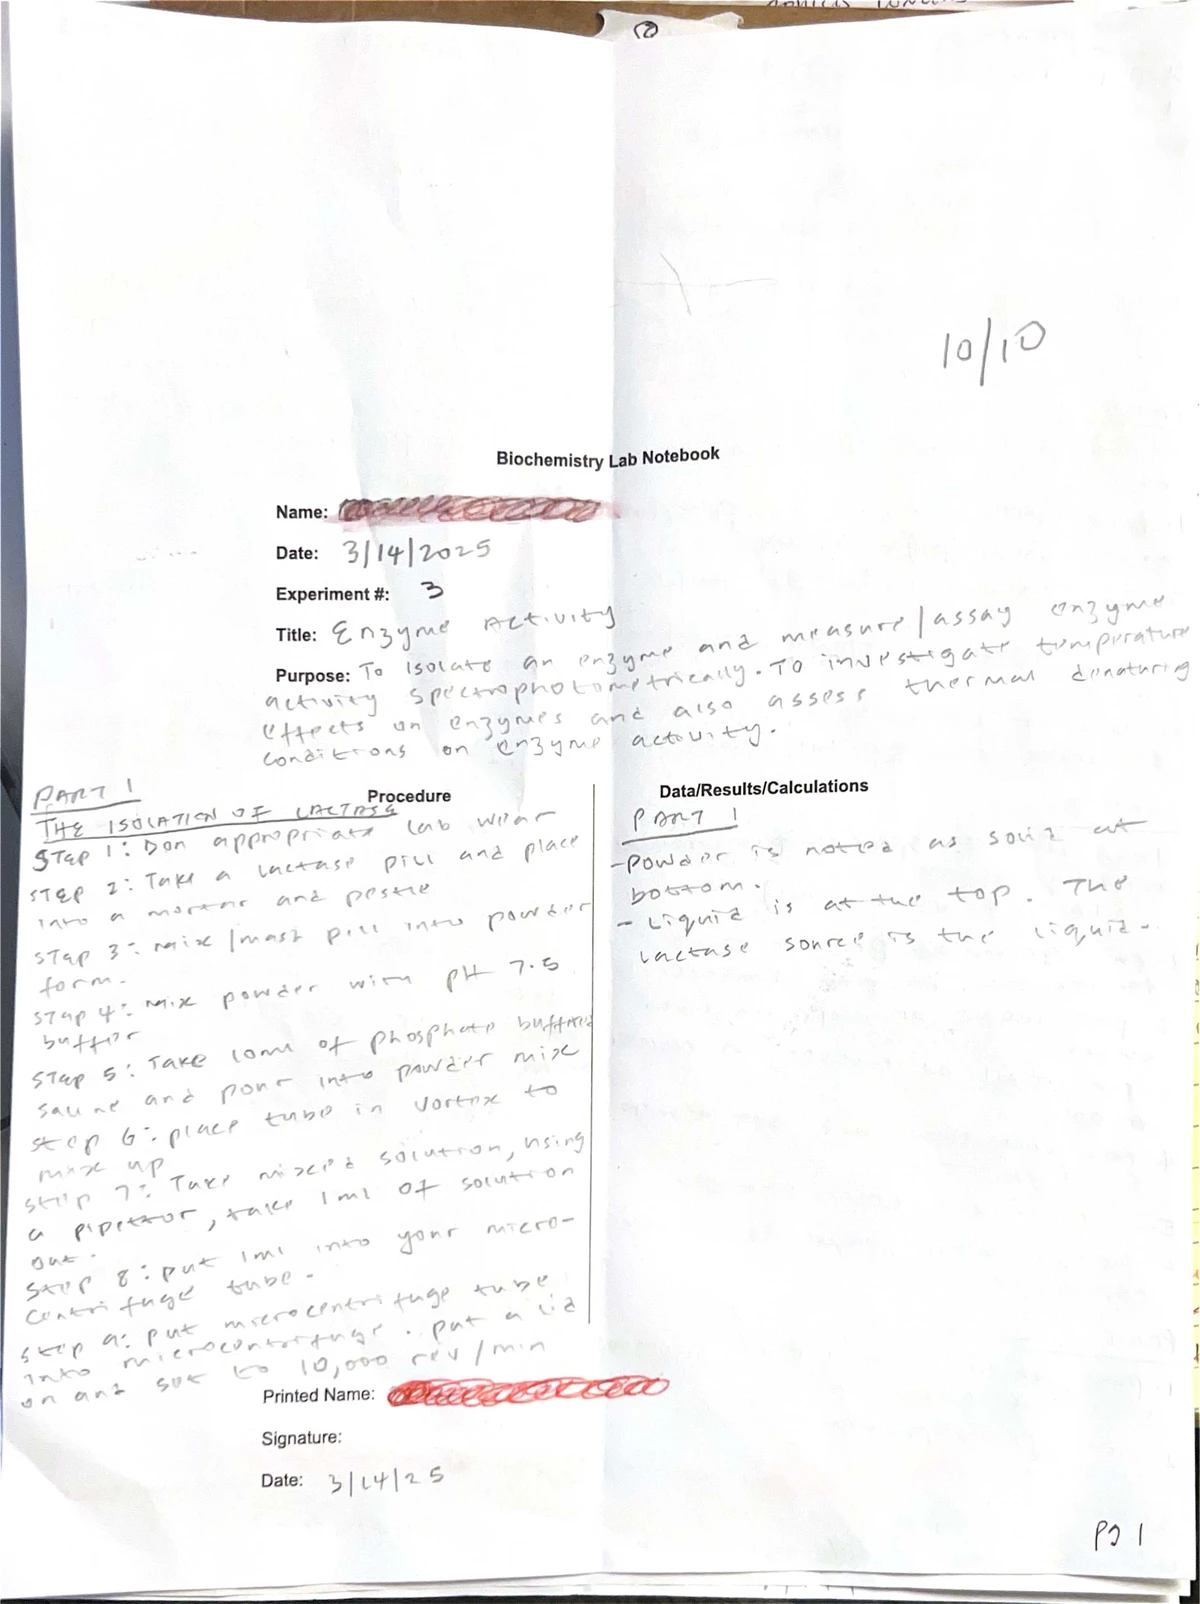 10/10
Biochemistry Lab Notebook
Name:
Date: 3/14/2025
Experiment #: 3
Title: Enzyme Activity
Purpose: To isolate an enzyme and measure/assay enzyme
activity spectrophotometrically. To investigate temperature
effects on enzymes and also assess thermal denaturing
conditions on enzyme activity.
PART 1
Procedure
THE ISOLATION OF LACTASE
STEP 1: Don appropriate lab wear
STEP 2: Take a lactase pill and place
into a mortar and pestle
STEP 3: Mix/mash pill into powder
form.
STEP 4: Mix powder with pH 7.5
buffer
STEP 5: Take 10ml of phosphate buffered
saline and pour into powder mix
Step 6: place tube in vortex to
mix up
Step 7: Take mixed solution, using
a pipettor, take 1ml of solution
out.
Step 8: put 1ml into your micro-
centrifuge tube.
Step 9: put microcentrifuge tube
into microcentrifuge. put a lid
on and set to 10,000 rev/min
Data/Results/Calculations
PART 1
- Powder is noted as solid at
bottom.
- Liquid is at the top. The
lactase source is the liquid.
Printed Name:
Signature:
Date: 3/14/25
Pg 1